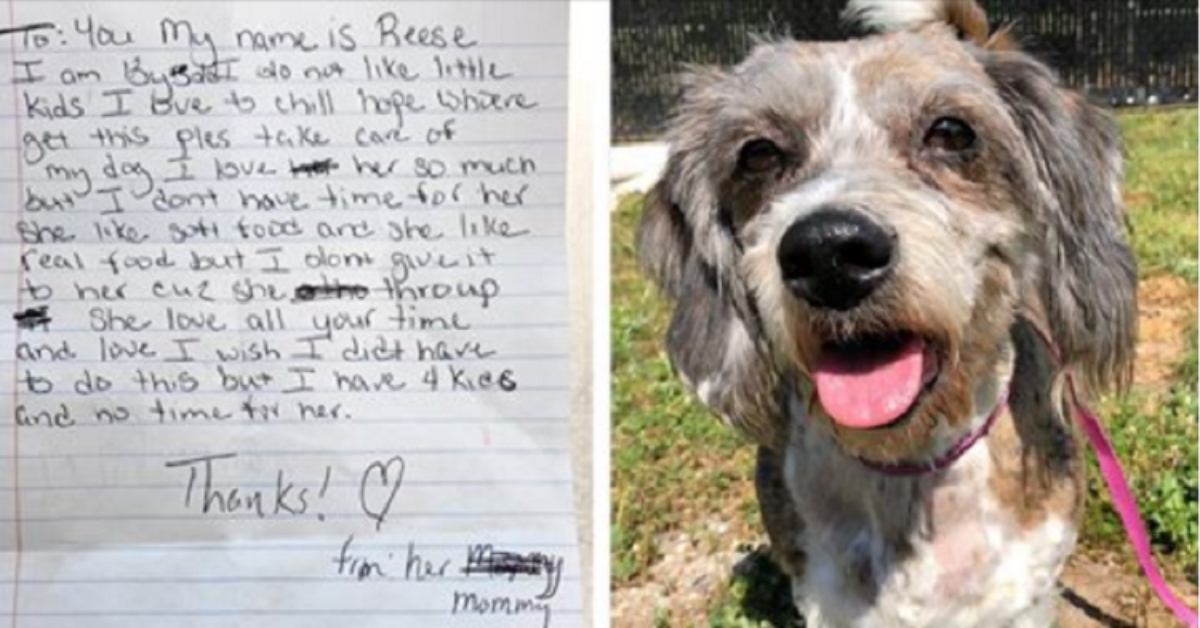 To: You My name is Reese
I am I do not like little
kids I love to chill hope Whoere
get this ples take care of
my dog I love her so much
but I don't have time for her
she like soft food and she like
real food but I dont give it
to her cuz she throup
She love all your time
and love I wish I did't have
to do this but I have 4 kids
and no time for her.
Thanks! ♡
from her
mommy